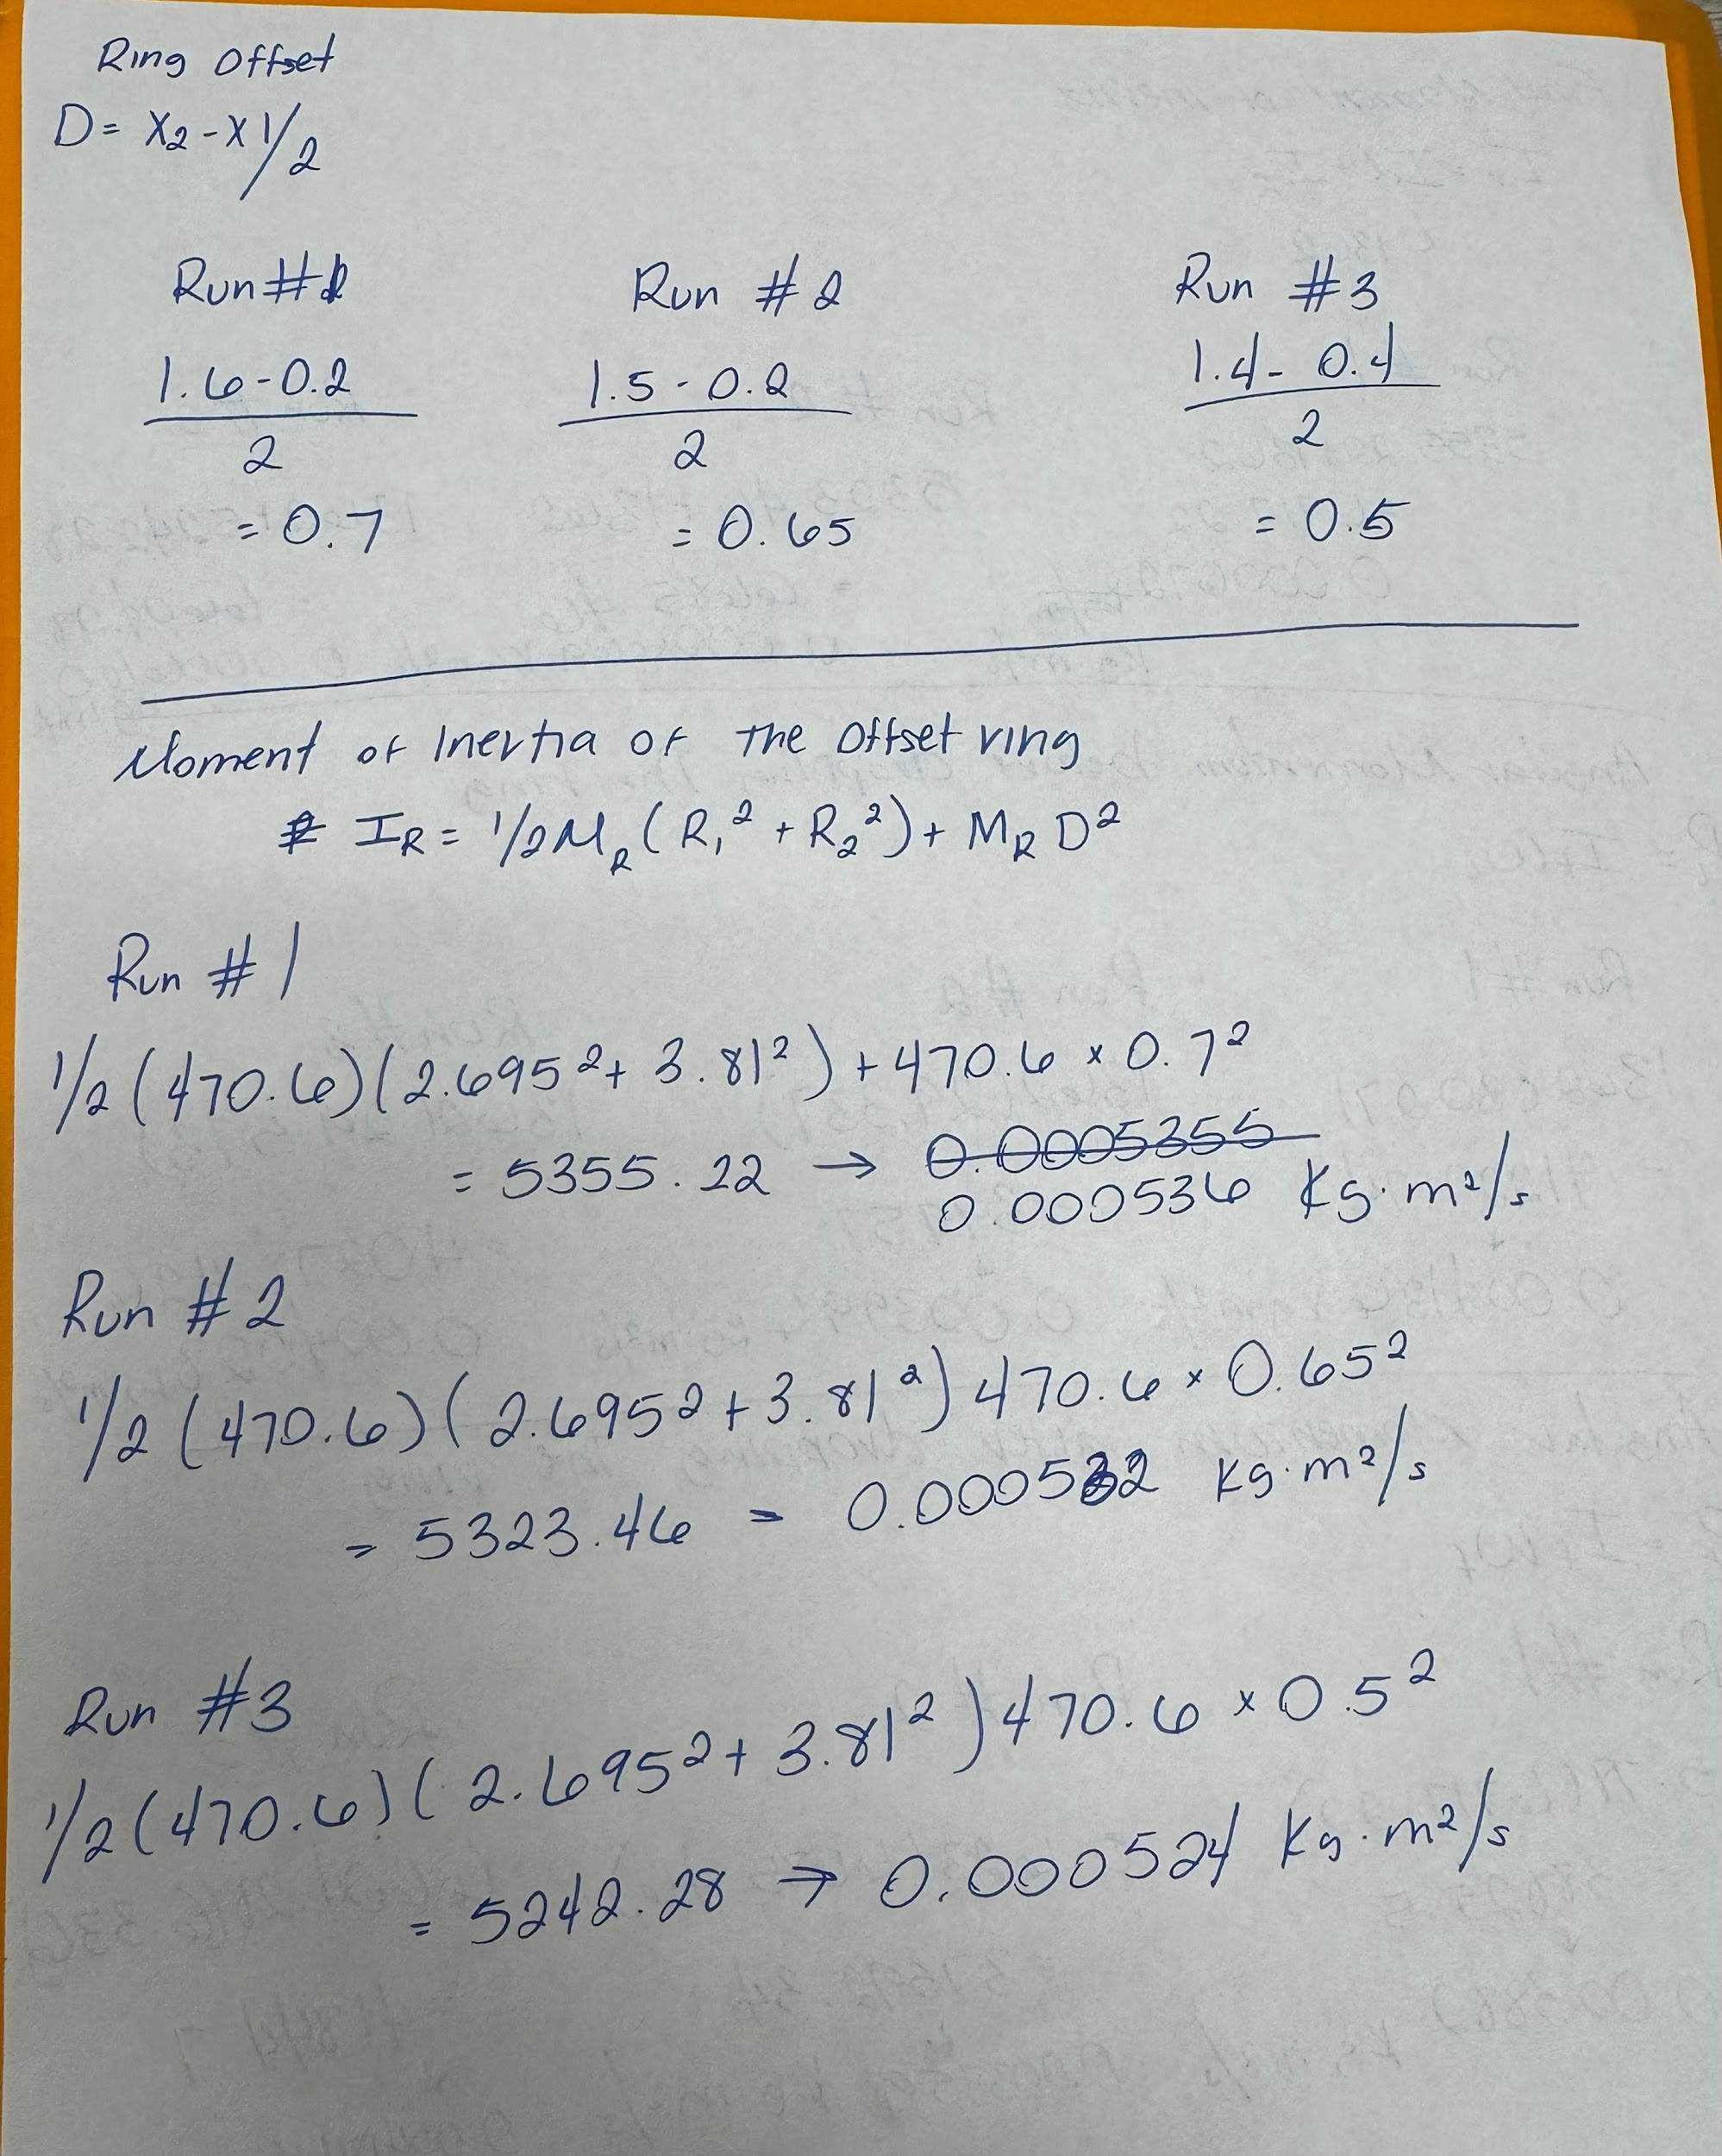 Ring Offset
D = X₂ - X1/2
Run #1 Run #2 Run #3
1.6 - 0.2 1.5 - 0.2 1.4 - 0.4
2 2 2
= 0.7 = 0.65 = 0.5
Moment of Inertia of the Offset ring
I_R = 1/2 M_R (R₁² + R₂²) + M_R D²
Run #1
1/2 (470.6)(2.695² + 3.81²) + 470.6 × 0.7²
= 5355.22 → 0.0005355
0.000536 Kg·m²/s
Run #2
1/2 (470.6)(2.695² + 3.81²) 470.6 × 0.65²
= 5323.46 = 0.000532 Kg·m²/s
Run #3
1/2 (470.6)(2.695² + 3.81²) 470.6 × 0.5²
= 5242.28 → 0.000524 Kg·m²/s